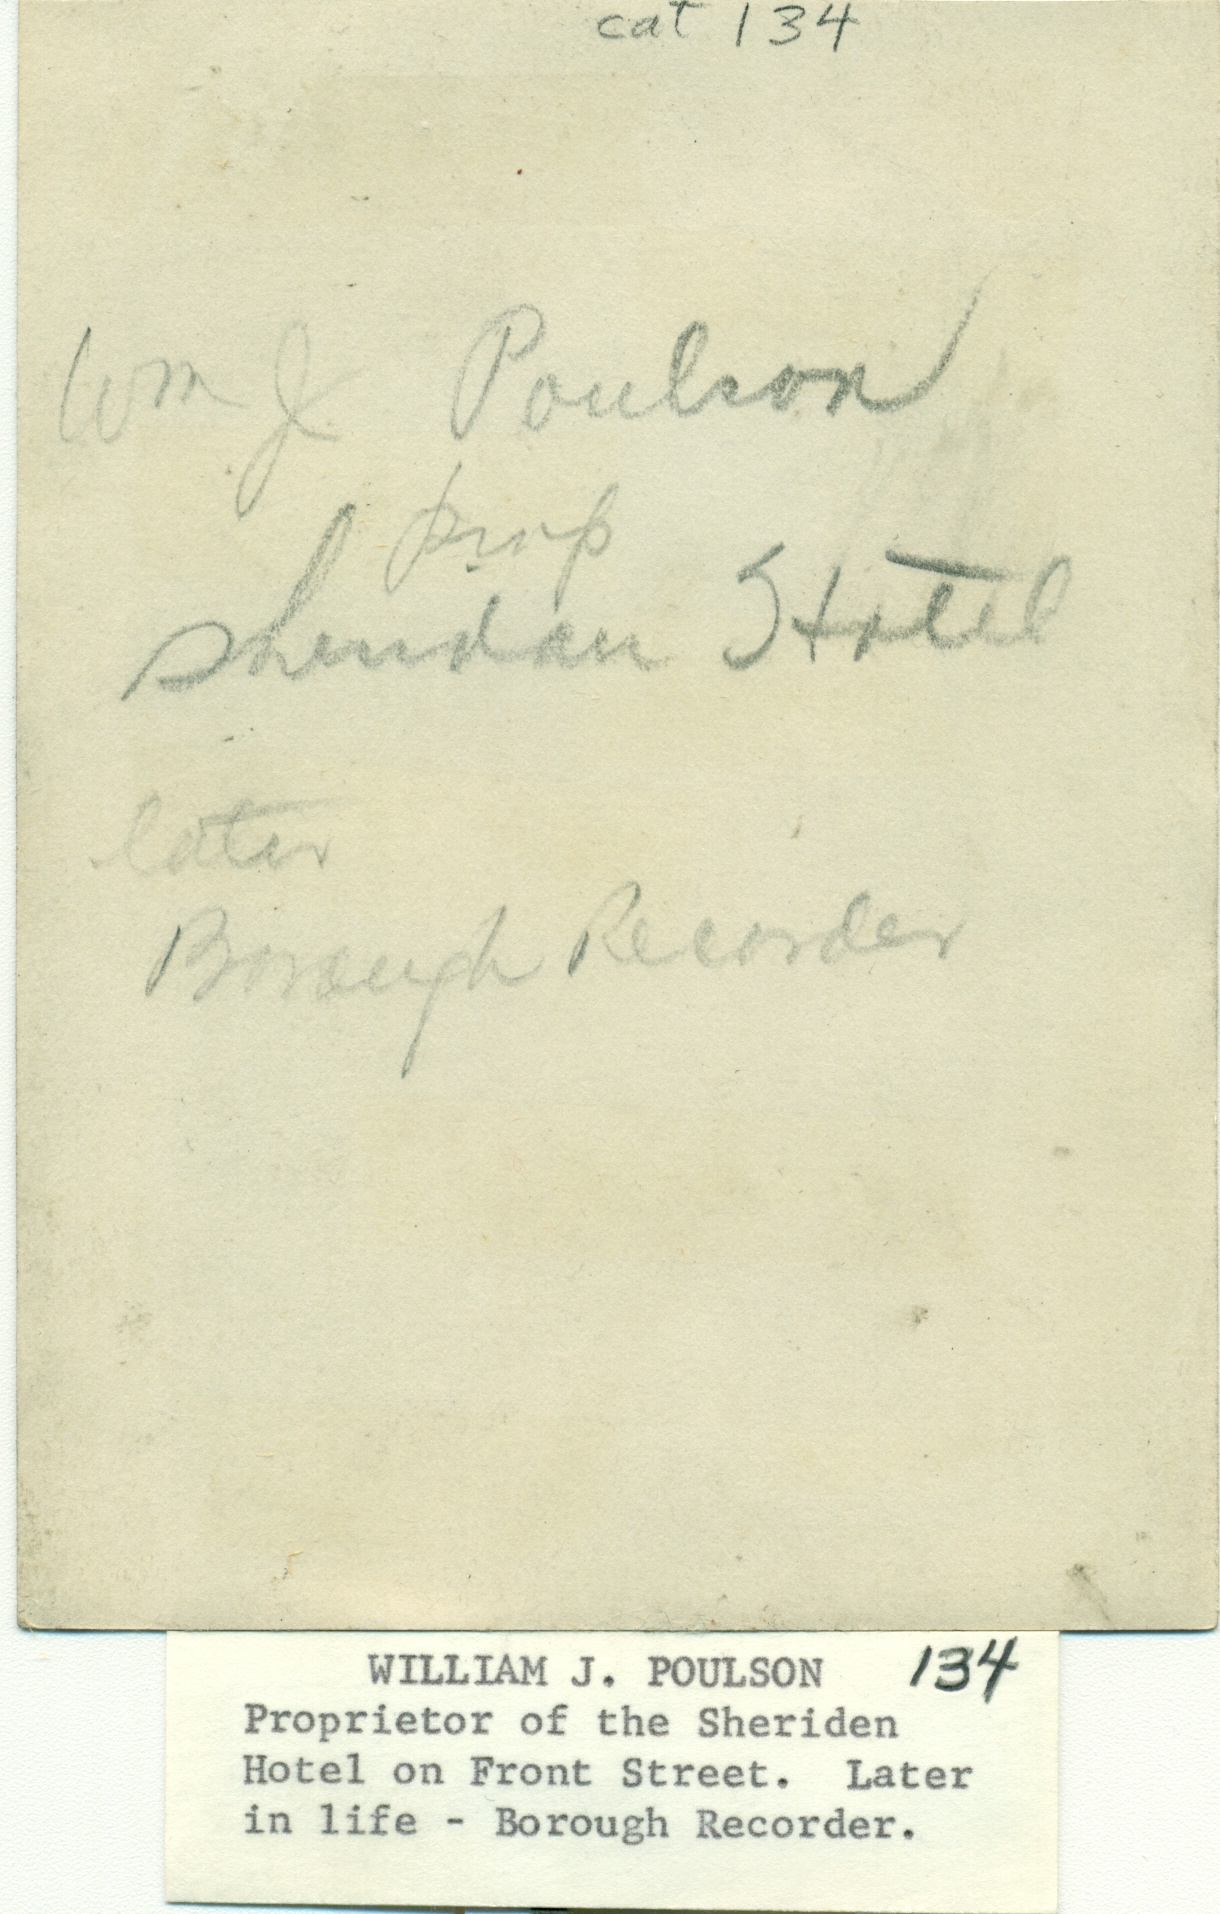 cat 134
Wm J Poulson
prop
Sheridan Hotel
later
Borough Recorder
WILLIAM J. POULSON 134
Proprietor of the Sheriden
Hotel on Front Street. Later
in life - Borough Recorder.